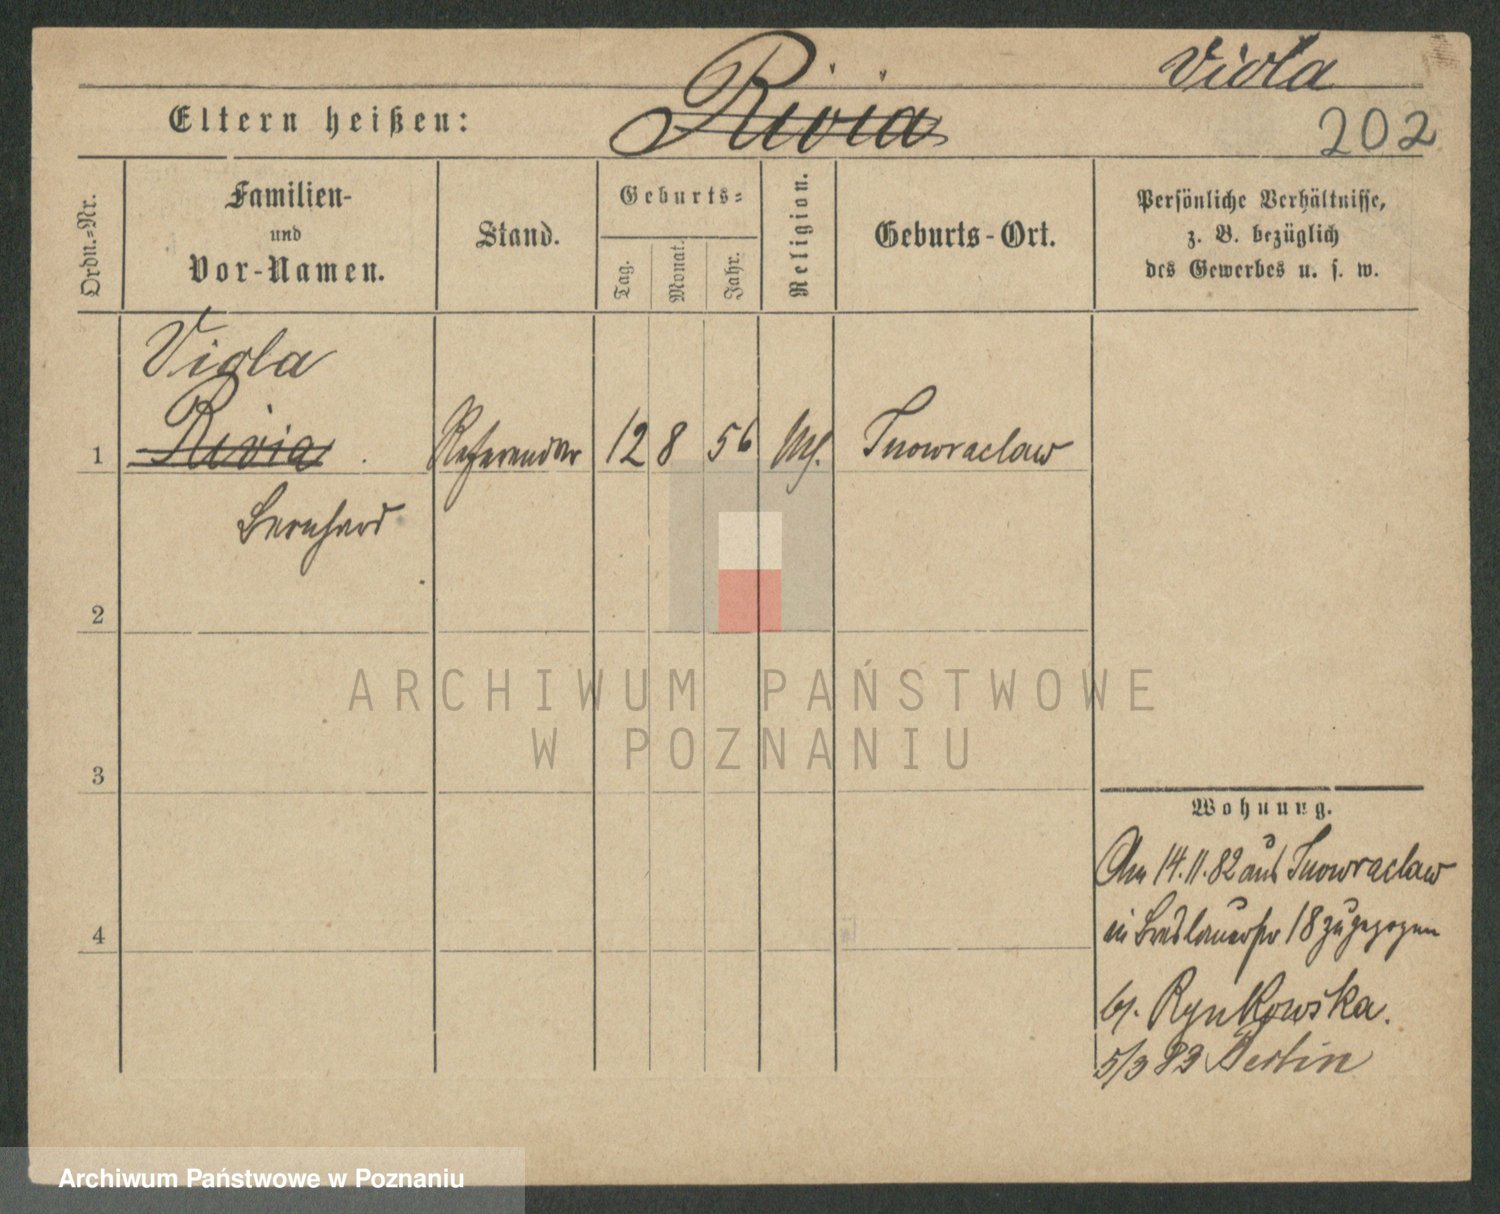 Viola
Rivia
Eltern heißen:
202
Ordn.=Nr.
Familien-
und
Vor-Namen.
Stand.
Geburts=
Tag.
Monat.
Jahr.
Religion.
Geburts-Ort.
Persönliche Verhältnisse,
z. B. bezüglich
des Gewerbes u. s. w.
Viola
1 Rivia Referendar 12 8 56 Inowraclaw
Bernhard
2
3
4
ARCHIWUM PAŃSTWOWE
W POZNANIU
Wohnung.
Am 14.11.82 aus Inowraclaw
in Breslauerstr 18 zugezogen
bei Rynkowska.
5/3 83 Berlin
Archiwum Państwowe w Poznaniu